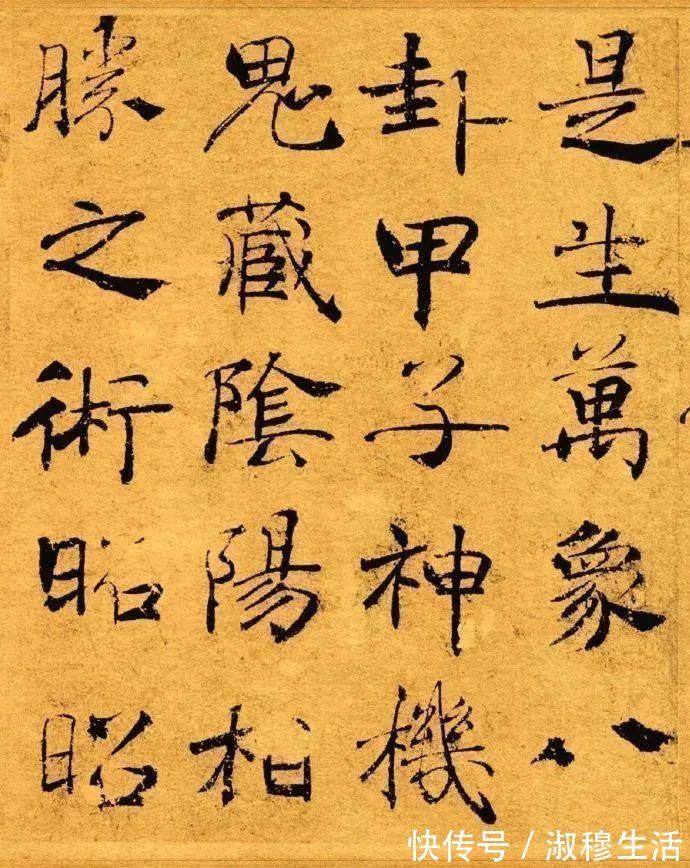 是生萬象八
卦甲子神機
鬼藏陰陽相
勝之術昭昭
快传号／淑穆生活